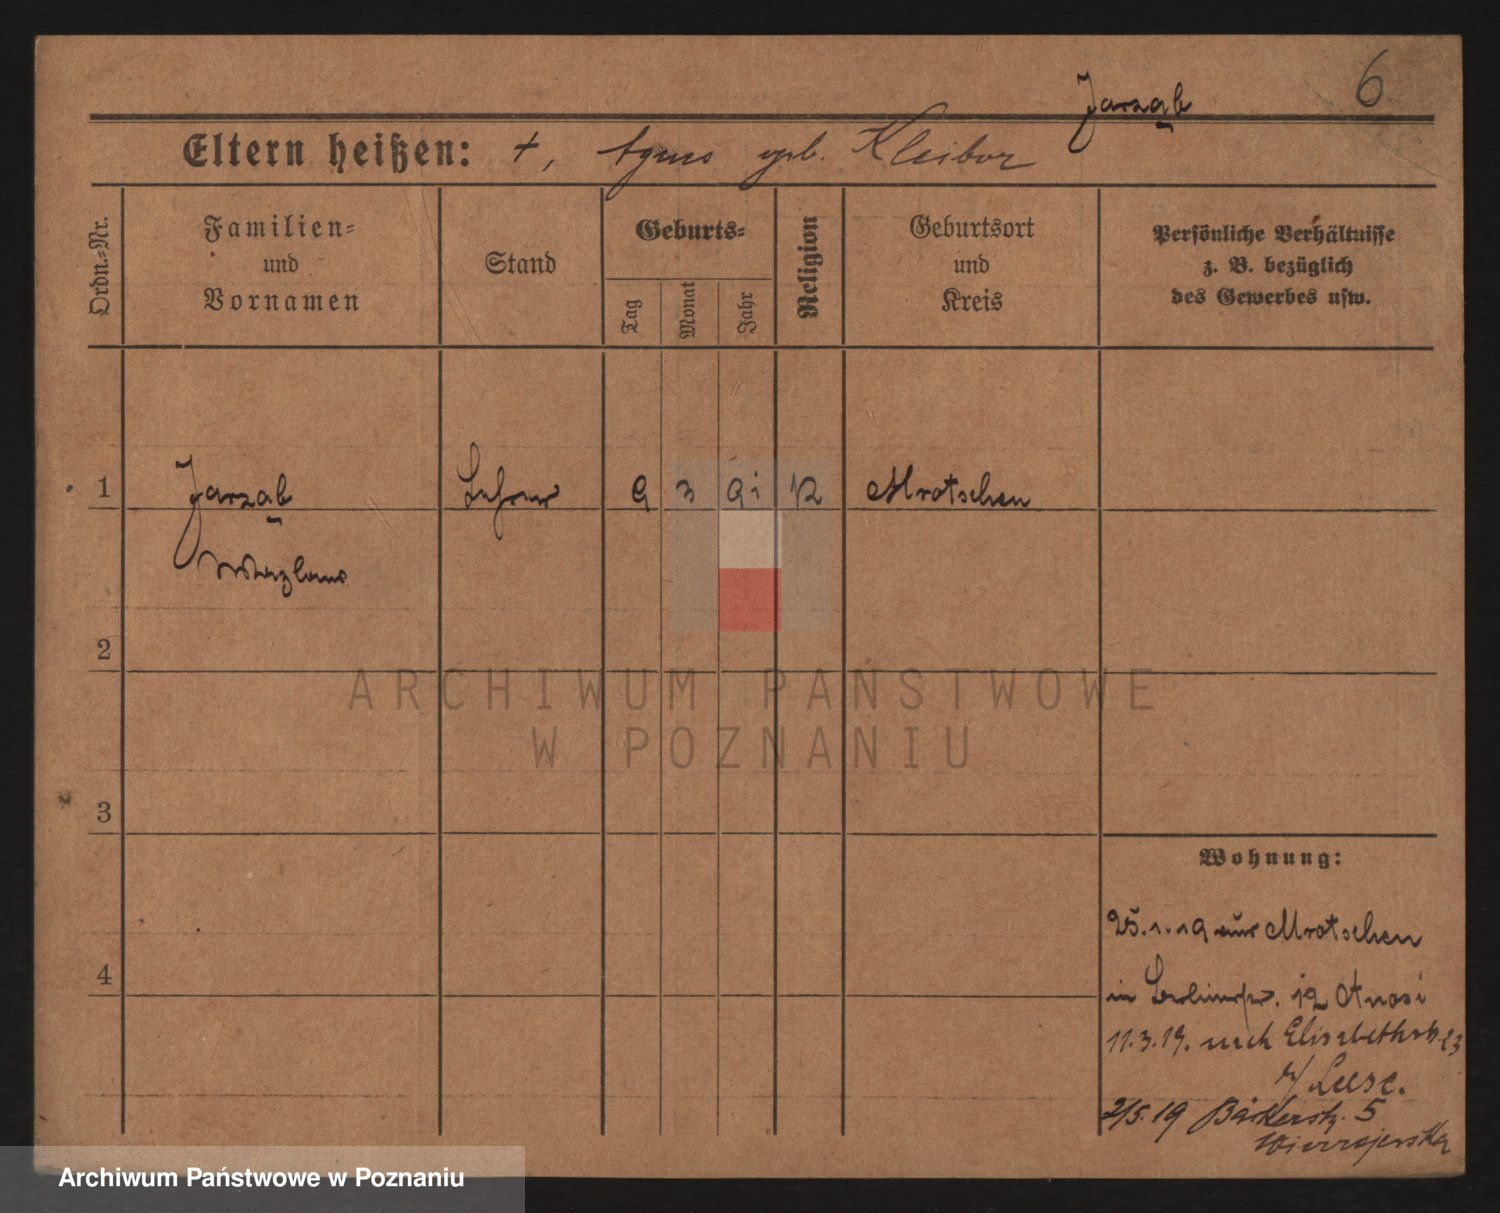 6
Jarząb
Eltern heißen: +, Agnes geb. Kleibor
Ordn.-Nr.
Familien-
und
Vornamen
Stand
Geburts-
Tag
Monat
Jahr
Religion
Geburtsort
und
Kreis
Persönliche Verhältnisse
z. B. bezüglich
des Gewerbes usw.
1 Jarząb Lehrer 9 3 91 K Mrotschen
2
ARCHIWUM PAŃSTWOWE
W POZNANIU
3
4
Wohnung:
25.1.19 aus Mrotschen
in Berlinerstr. 12
11.3.19. nach Elisabethstr. 23
b/ Leese.
2/5.19 Bäckerstr. 5
Archiwum Państwowe w Poznaniu